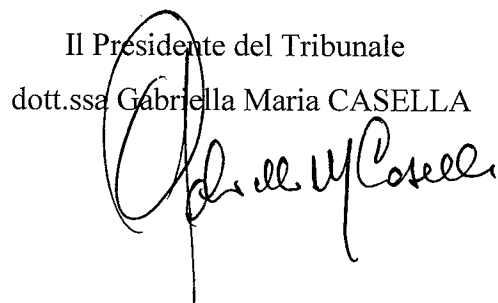 Il Presidente del Tribunale
dott.ssa Gabriella Maria CASELLA
Gabriella M Casella